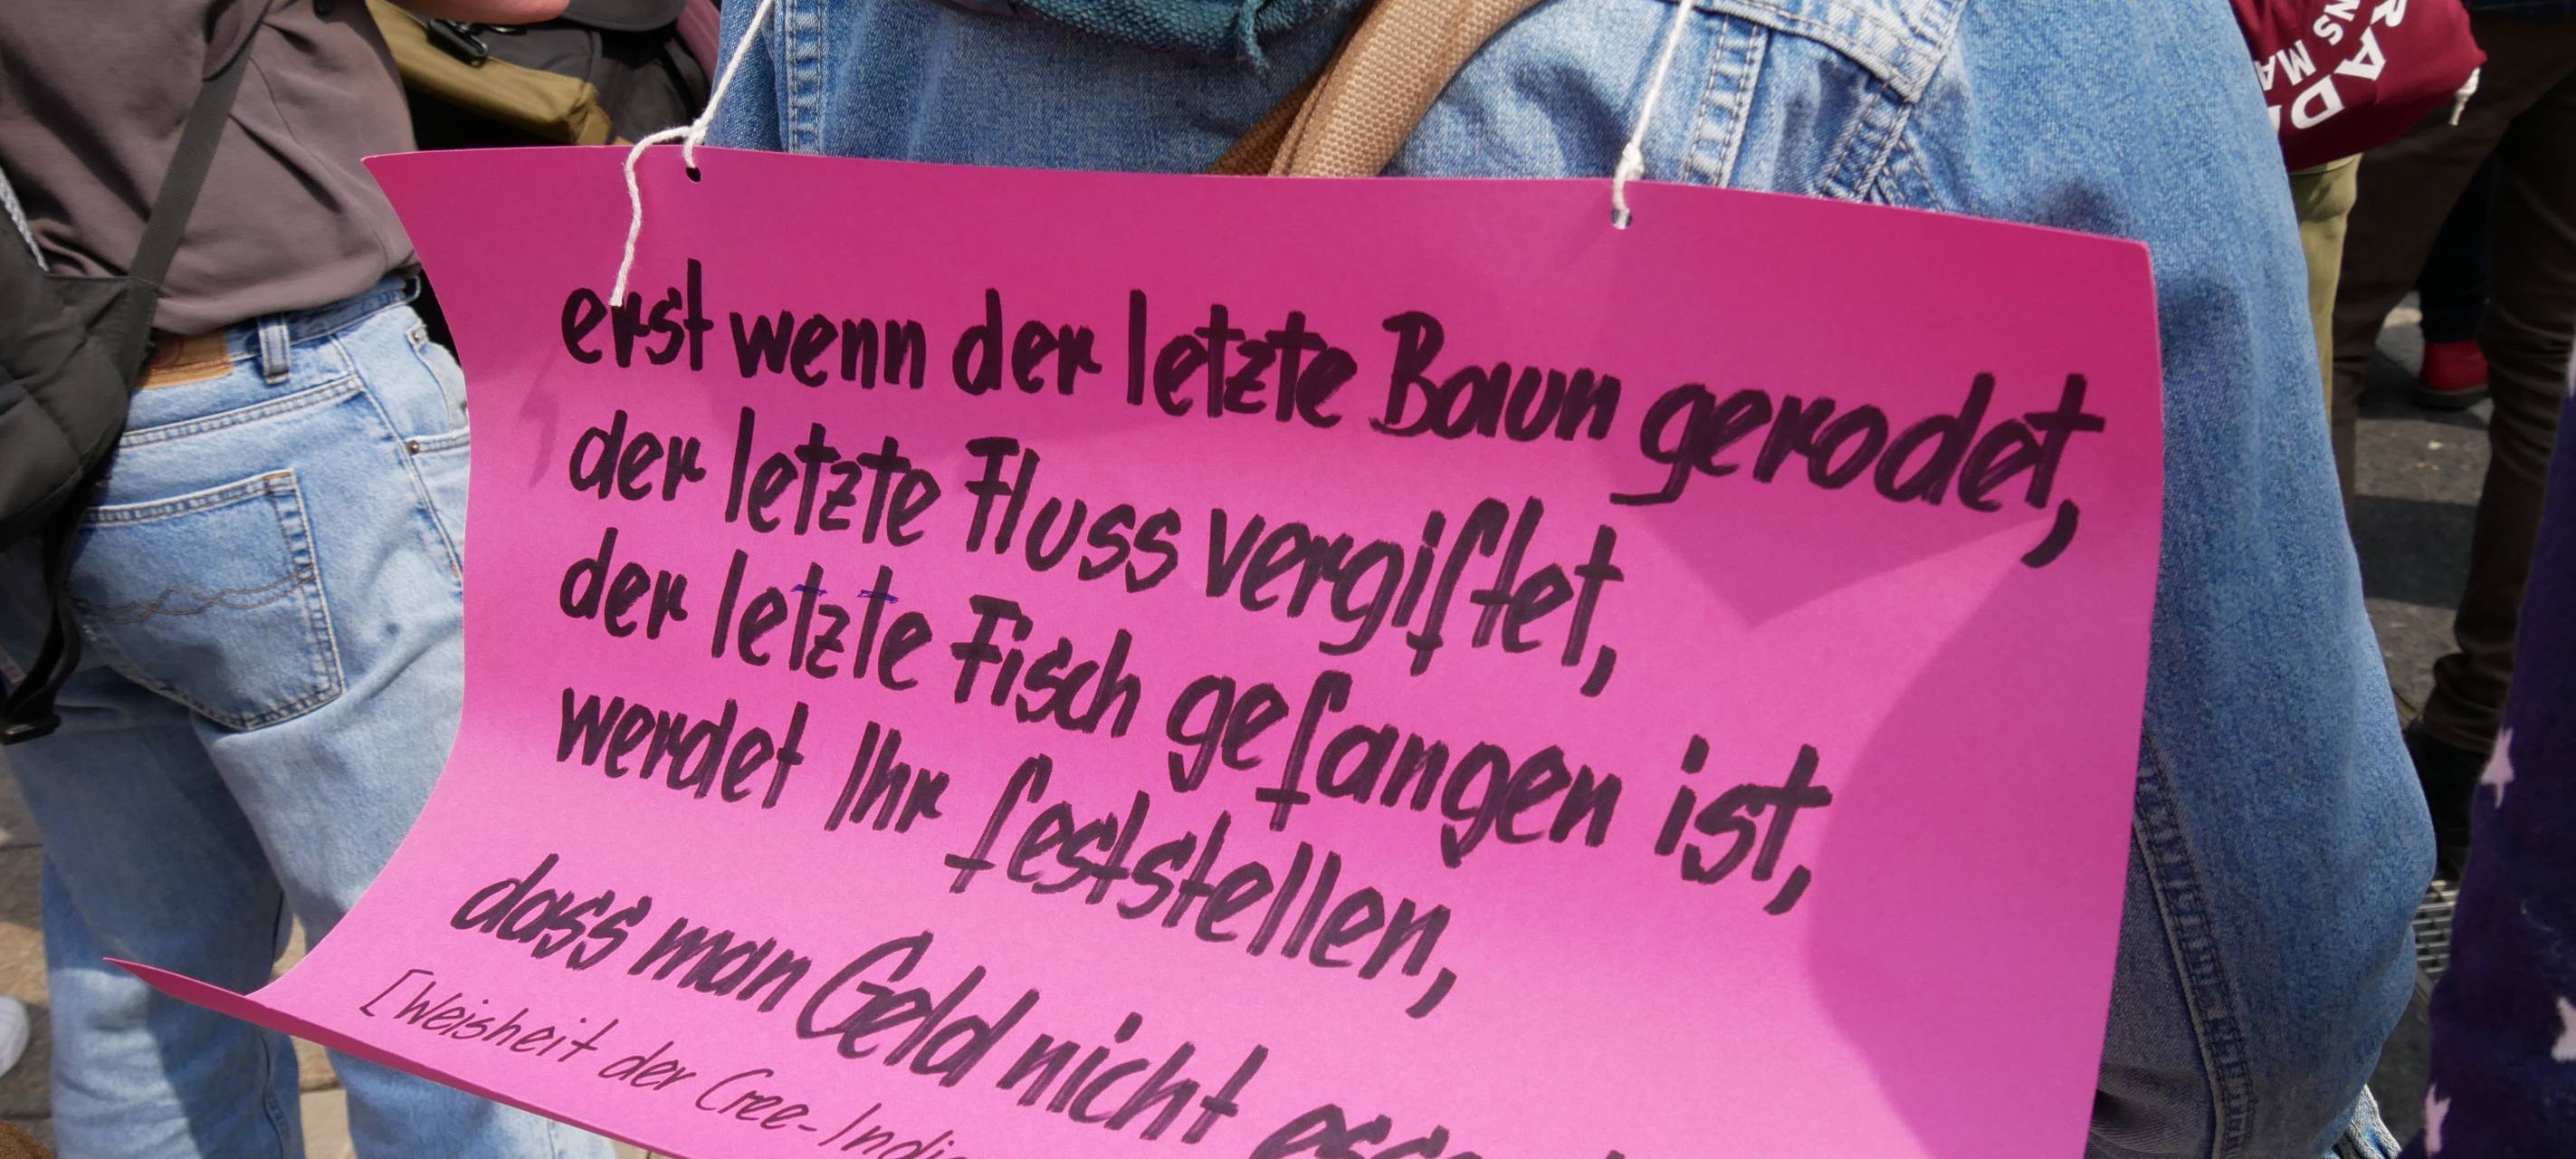 erst wenn der letzte Baum gerodet,
der letzte Fluss vergiftet,
der letzte Fisch gefangen ist,
werdet Ihr feststellen,
dass man Geld nicht
[Weisheit der Cree-